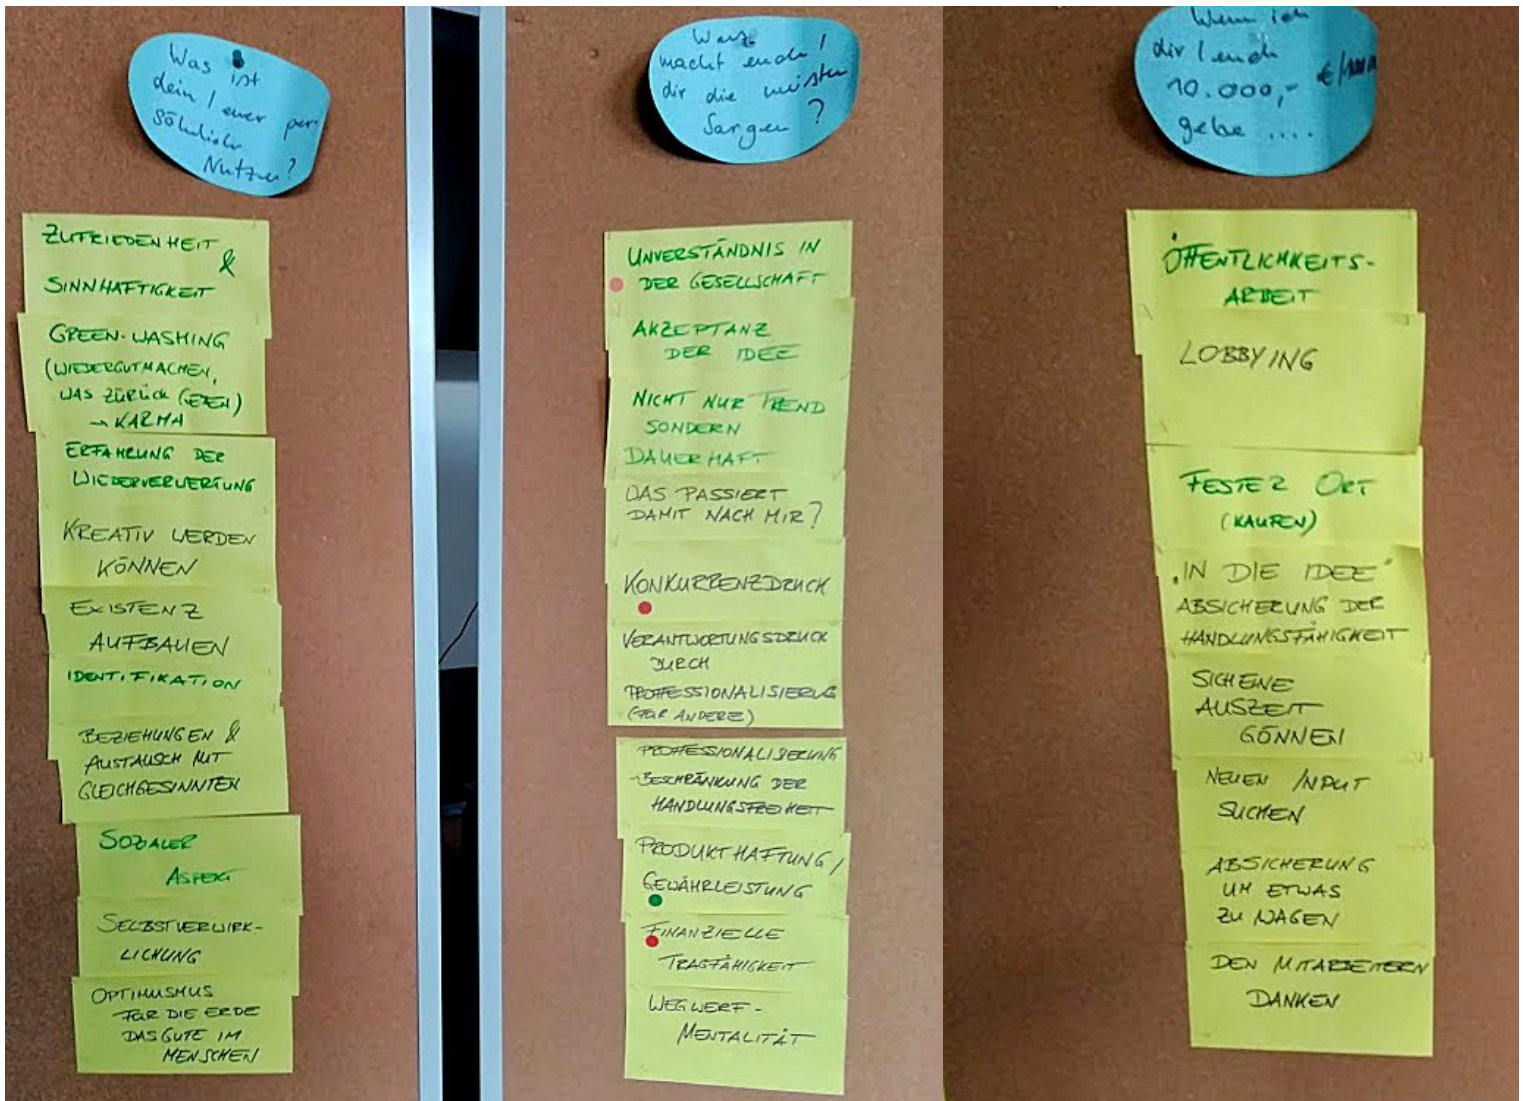 Was ist
dein / euer per-
sönlicher
Nutzen?
ZUFRIEDENHEIT
&
SINNHAFTIGKEIT
GREEN-WASHING
(WIEDERGUTMACHEN,
WAS ZURÜCK GEBEN)
→ KARMA
ERFAHRUNG DER
WIEDERVERWERTUNG
KREATIV WERDEN
KÖNNEN
EXISTENZ
AUFBAUEN
IDENTIFIKATION
BEZIEHUNGEN &
AUSTAUSCH MIT
GLEICHGESINNTEN
SOZIALER
ASPEKT
SELBSTVERWIRK-
LICHUNG
OPTIMISMUS
FÜR DIE ERDE
DAS GUTE IM
MENSCHEN
Was
macht euch /
dir die meisten
Sorgen?
UNVERSTÄNDNIS IN
DER GESELLSCHAFT
AKZEPTANZ
DER IDEE
NICHT NUR TREND
SONDERN
DAUERHAFT
WAS PASSIERT
DAMIT NACH MIR?
KONKURRENZDRUCK
VERANTWORTUNGSDRUCK
DURCH
PROFESSIONALISIERUNG
(FÜR ANDERE)
PROFESSIONALISIERUNG
→ BESCHRÄNKUNG DER
HANDLUNGSFREIHEIT
PRODUKTHAFTUNG /
GEWÄHRLEISTUNG
FINANZIELLE
TRAGFÄHIGKEIT
WEGWERF-
MENTALITÄT
Wenn ich
dir / euch
10.000,- €
gebe ....
ÖFFENTLICHKEITS-
ARBEIT
LOBBYING
FESTER ORT
(KAUFEN)
„IN DIE IDEE"
ABSICHERUNG DER
HANDLUNGSFÄHIGKEIT
SICH EINE
AUSZEIT
GÖNNEN
NEUEN INPUT
SUCHEN
ABSICHERUNG
UM ETWAS
ZU WAGEN
DEN MITARBEITERN
DANKEN